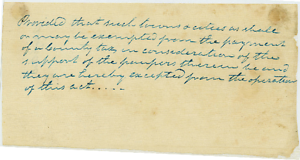 Provided that such towns & cities as shall
or may be exempted from the payment
of a County tax in consideration of the
support of the paupers therein be and
they are hereby excepted from the operation
of this act.....